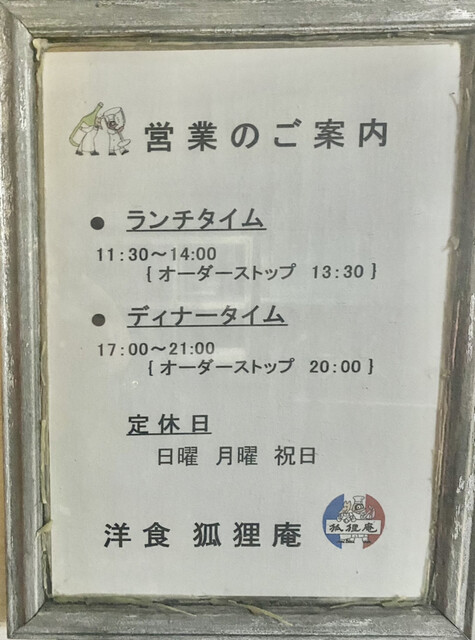 営業のご案内
● ランチタイム
11:30～14:00
{ オーダーストップ 13:30 }
● ディナータイム
17:00～21:00
{ オーダーストップ 20:00 }
定休日
日曜 月曜 祝日
洋食 狐狸庵
狐狸庵